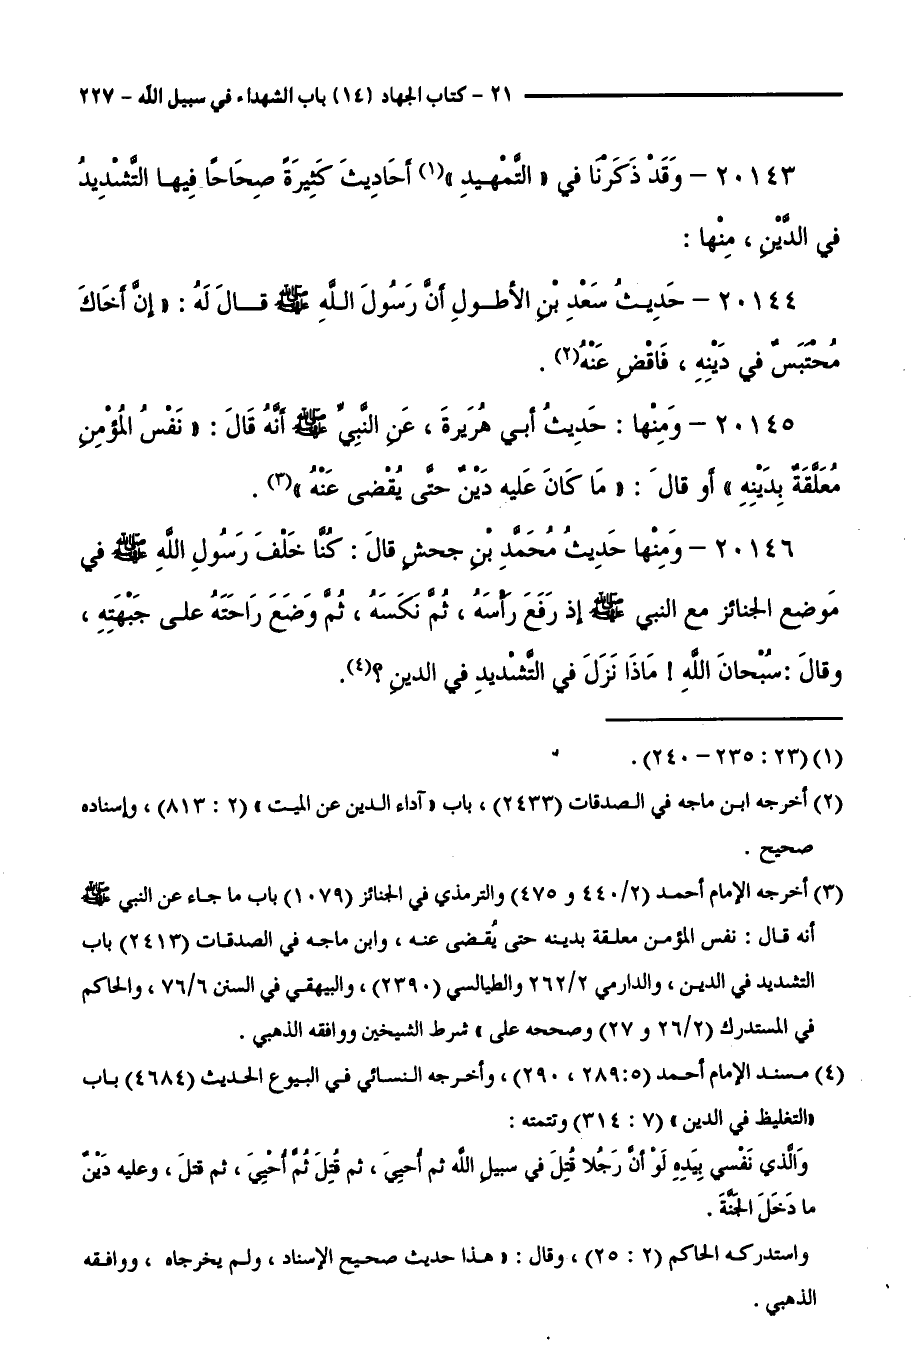 ٢١ - كتاب الجهاد (١٤) باب الشهداء في سبيل الله - ٢٢٧
٢٠١٤٣ - وَقَدْ ذَكَرْنَا في « التَّمْهِيدِ »(١) أحَادِيثَ كَثِيرَةً صِحَاحًا فِيها التَّشْدِيدُ
في الدَّيْنِ ، مِنْها :
٢٠١٤٤ - حَدِيثُ سَعْدِ بْنِ الأطولِ أنَّ رَسُولَ اللَّهِ ﷺ قالَ لَهُ : « إنَّ أخَاكَ
مُحْتَبَسٌ في دَيْنِهِ ، فَاقْضِ عَنْهُ(٢) .
٢٠١٤٥ - وَمِنْها : حَدِيثُ أبي هُرَيرةَ ، عَنِ النَّبِيِّ ﷺ أنَّهُ قَالَ : « نَفْسُ المُؤْمِنِ
مُعَلَّقَةٌ بِدَيْنِهِ » أو قالَ : « مَا كَانَ عَليه دَيْنٌ حتَّى يُقْضى عَنْهُ »(٣) .
٢٠١٤٦ - وَمِنْها حَدِيثُ مُحَمَّدِ بْنِ جحشٍ قالَ : كُنَّا خَلْفَ رَسُولِ اللَّهِ ﷺ في
مَوضعِ الجنائز مع النبي ﷺ إذ رَفَعَ رَأسَهُ ، ثُمَّ نَكَسَهُ ، ثُمَّ وَضَعَ رَاحَتَهُ على جَبْهَتِهِ ،
وقالَ :سُبْحانَ اللَّهِ ! مَاذَا نَزَلَ في التَّشْديدِ في الدينِ ؟(٤).
(١) (٢٣ : ٢٣٥ - ٢٤٠) .
(٢) أخرجه ابن ماجه في الصدقات (٢٤٣٣) ، باب « آداء الدين عن الميت » (٢ : ٨١٣) ، وإسناده
صحيح .
(٣) أخرجه الإمام أحمد (٤٤٠/٢ و ٤٧٥) والترمذي في الجنائز (١٠٧٩) باب ما جاء عن النبي ﷺ
أنه قال : نفس المؤمن معلقة بدينه حتى يُقضى عنه ، وابن ماجه في الصدقات (٢٤١٣) باب
التشديد في الدين ، والدارمي ٢٦٢/٢ والطيالسي (٢٣٩٠) ، والبيهقي في السنن ٧٦/٦ ، والحاكم
في المستدرك (٢٦/٢ و ٢٧) وصححه على » شرط الشيخين ووافقه الذهبي .
(٤) مسند الإمام أحمد (٢٨٩:٥ ، ٢٩٠) ، وأخرجه النسائي في البيوع الحديث (٤٦٨٤) باب
«التغليظ في الدين » (٧ : ٣١٤) وتتمته :
وَالَّذي نَفْسي بِيَدِهِ لَوْ أنَّ رَجُلا قُتِلَ في سبيلِ اللَّه ثم أُحييَ ، ثم قُتِلَ ثُمَّ أحْيِيَ ، ثم قتلَ ، وعليه دَيْنٌ
ما دَخَلَ الجَنَّةَ .
واستدركه الحاكم (٢ : ٢٥) ، وقال : « هذا حديث صحيح الإسناد ، ولم يخرجاه ، ووافقه
الذهبي .